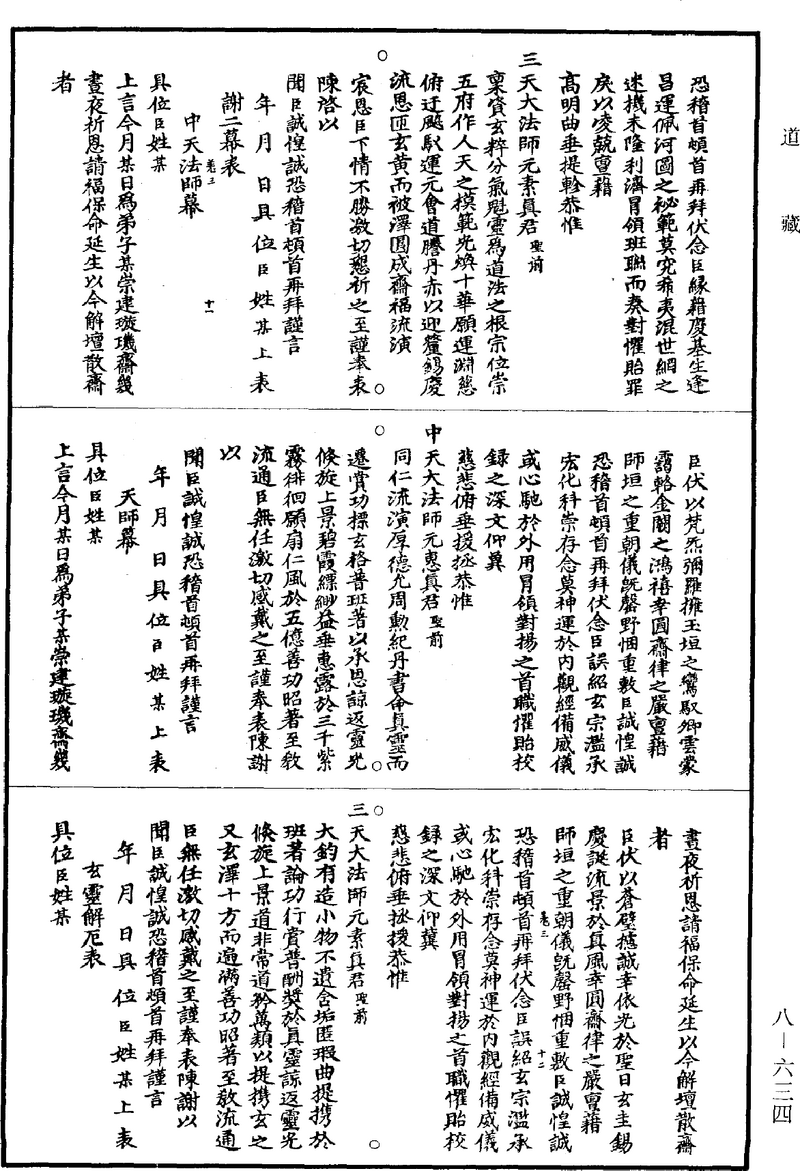 道藏
恐稽首頓首再拜伏念臣緣籍慶基生逢
昌運佩河圖之祕範莫究希夷混世網之
迷機未隆利濟冒領班聯而奏對懼貽罪
戾以凌兢亶藉
高明曲垂提軫恭惟
三天大法師元素真君聖前
稟資玄粹分氣魁靈為道法之根宗位崇
五府作人天之模範光煥十華願運淵慈
俯迂飈馭運元會道謄丹赤以迎釐錫慶
流恩匝玄黃而被澤圓成齋福流演
宸恩臣下情不勝激切懇祈之至謹奉表
陳啓以
聞臣誠惶誠恐稽首頓首再拜謹言
年月日具位臣姓某上表
謝二幕表
卷三
十一
中天法師幕
具位臣姓某
上言今月某日為弟子某崇建璇璣齋幾
晝夜祈恩請福保命延生以今解壇散齋
者
臣伏以梵炁彌羅擁玉垣之鸞馭卿雲蒙
靄輅金闕之鴻禧幸圓齋律之嚴亶藉
師垣之重朝儀旣罄野悃重敷臣誠惶誠
恐稽首頓首再拜伏念臣誤紹玄宗濫承
宏化科崇存念莫神運於內觀經備威儀
或心馳於外用冒領對揚之首職懼貽校
録之深文仰冀
慈悲俯垂援拯恭惟
中天大法師元惠真君聖前
同仁流演厚德尤周勳紀丹書命真靈而
遷賞功標玄格普班著以承恩諒返靈光
倏旋上景碧霞縹緲益垂惠露於三千紫
霧徘徊願扇仁風於五億善功昭著至敎
流通臣無任激切感戴之至謹奉表陳謝
以
聞臣誠惶誠恐稽首頓首再拜謹言
年月日具位臣姓某上表
天師幕
具位臣姓某
上言今月某日為弟子某崇建璇璣齋幾
晝夜祈恩請福保命延生以今解壇散齋
者
臣伏以蒼璧攄誠幸依光於聖日玄圭錫
慶誕流景於真風幸圓齋律之嚴亶藉
師垣之重朝儀旣罄野悃重敷臣誠惶誠
卷三
十二
恐稽首頓首再拜伏念臣誤紹玄宗濫承
宏化科崇存念莫神運於內觀經備威儀
或心馳於外用冒領對揚之首職懼貽校
録之深文仰冀
慈悲俯垂拯援恭惟
三天大法師元素真君聖前
大鈞有造小物不遺含垢匿瑕曲提携於
班著論功行賞普酬奬於真靈諒返靈光
倏旋上景道非常道矜萬類以提携玄之
又玄澤十方而遍滿善功昭著至敎流通
臣無任激切感戴之至謹奉表陳謝以
聞臣誠惶誠恐稽首頓首再拜謹言
年月日具位臣姓某上表
玄靈解厄表
具位臣姓某
八—六三四